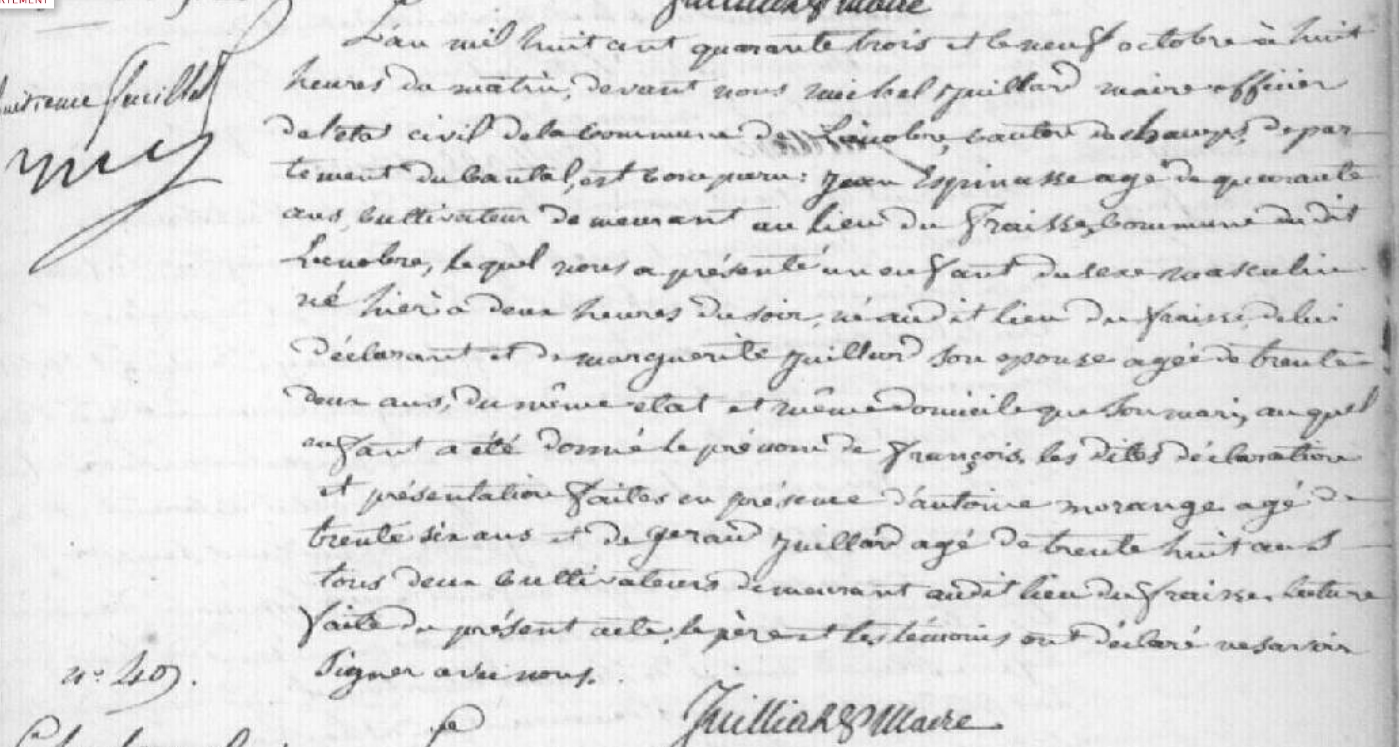 Juilliard Maire
L'an mil huit cent quarante trois et le neuf octobre à huit
heures du matin, devant nous michel juillard maire officier
de l'état civil de la commune de Lanobre, canton de champs, depar
tement du Cantal, est comparu: jean Espinasse agé de quarante
ans, cultivateur demeurant au lieu du fraisse, commune du dit
Lanobre, lequel nous a présenté un enfant du sexe masculin
né hier à deux heures du soir, né audit lieu du fraisse, de lui
déclarant et de marguerite juillard son epouse agée de trente
deux ans, du même etat et même domicile que son mari, auquel
enfant a été donné le prénom de françois, les dittes déclaration
et présentation faites en présence d'antoine morange agé de
trente six ans et de geraud juillard agé de trente huit ans
tous deux cultivateurs demeurant audit lieu du fraisse. lecture
faite du présent acte, le père et les témoins ont déclaré ne savoir
signer avec nous.
n° 40.
Juilliard Maire